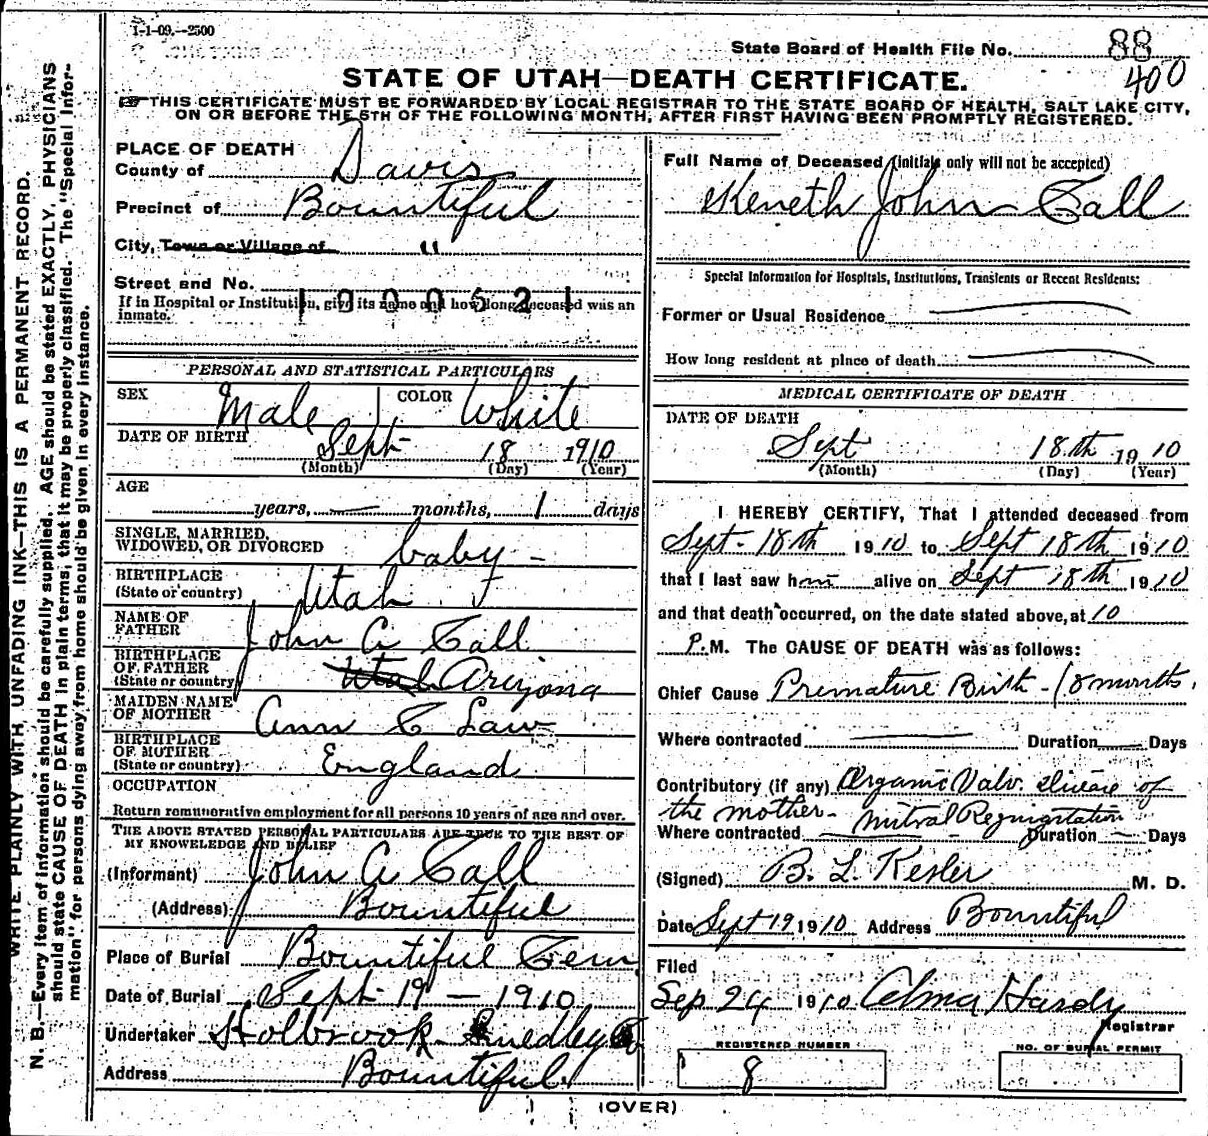 1-1-09.--2500
State Board of Health File No. 88
400
STATE OF UTAH—DEATH CERTIFICATE.
☞THIS CERTIFICATE MUST BE FORWARDED BY LOCAL REGISTRAR TO THE STATE BOARD OF HEALTH, SALT LAKE CITY,
ON OR BEFORE THE 5TH OF THE FOLLOWING MONTH, AFTER FIRST HAVING BEEN PROMPTLY REGISTERED.
WRITE PLAINLY WITH UNFADING INK—THIS IS A PERMANENT RECORD.
N. B.—Every item of information should be carefully supplied. AGE should be stated EXACTLY, PHYSICIANS
should state CAUSE OF DEATH in plain terms, that it may be properly classified. The "Special Infor-
mation" for persons dying away from home should be given in every instance.
PLACE OF DEATH
County of Davis
Precinct of Bountiful
City, Town or Village of "
Street and No.
1000521
If in Hospital or Institution, give its name and how long deceased was an
inmate.
PERSONAL AND STATISTICAL PARTICULARS
SEX Male COLOR White
DATE OF BIRTH Sept 18 1910
(Month) (Day) (Year)
AGE
years, — months, 1 days
SINGLE, MARRIED,
WIDOWED, OR DIVORCED baby -
BIRTHPLACE
(State or country) Utah
NAME OF
FATHER John A Call
BIRTHPLACE
OF FATHER
(State or country) Utah Arizona
MAIDEN NAME
OF MOTHER Ann C Law
BIRTHPLACE
OF MOTHER
(State or country) England
OCCUPATION
Return remunerative employment for all persons 10 years of age and over.
THE ABOVE STATED PERSONAL PARTICULARS ARE TRUE TO THE BEST OF
MY KNOWLEDGE AND BELIEF
(Informant) John A Call
(Address) Bountiful
Place of Burial Bountiful Cem
Date of Burial Sept 19 - 1910
Undertaker Holbrook Smedley Co
Address Bountiful
Full Name of Deceased (initials only will not be accepted)
Keneth John Call
Special Information for Hospitals, Institutions, Transients or Recent Residents:
Former or Usual Residence
How long resident at place of death
MEDICAL CERTIFICATE OF DEATH
DATE OF DEATH
Sept 18th 1910
(Month) (Day) (Year)
I HEREBY CERTIFY, That I attended deceased from
Sept. 18th 1910 to Sept 18th 1910
that I last saw him alive on Sept 18th 1910
and that death occurred, on the date stated above, at 10
P.M. The CAUSE OF DEATH was as follows:
Chief Cause Premature Birth - 8 months.
Where contracted — Duration — Days
Contributory (if any) Organic Valv. disease of
the mother - mitral Regurgitation
Where contracted — Duration — Days
(Signed) B. L. Kesler M. D.
Date Sept 19 1910 Address Bountiful
Filed
Sep 24 1910 Alma Hardy
Registrar
REGISTERED NUMBER
8
NO. OF BURIAL PERMIT
(OVER)